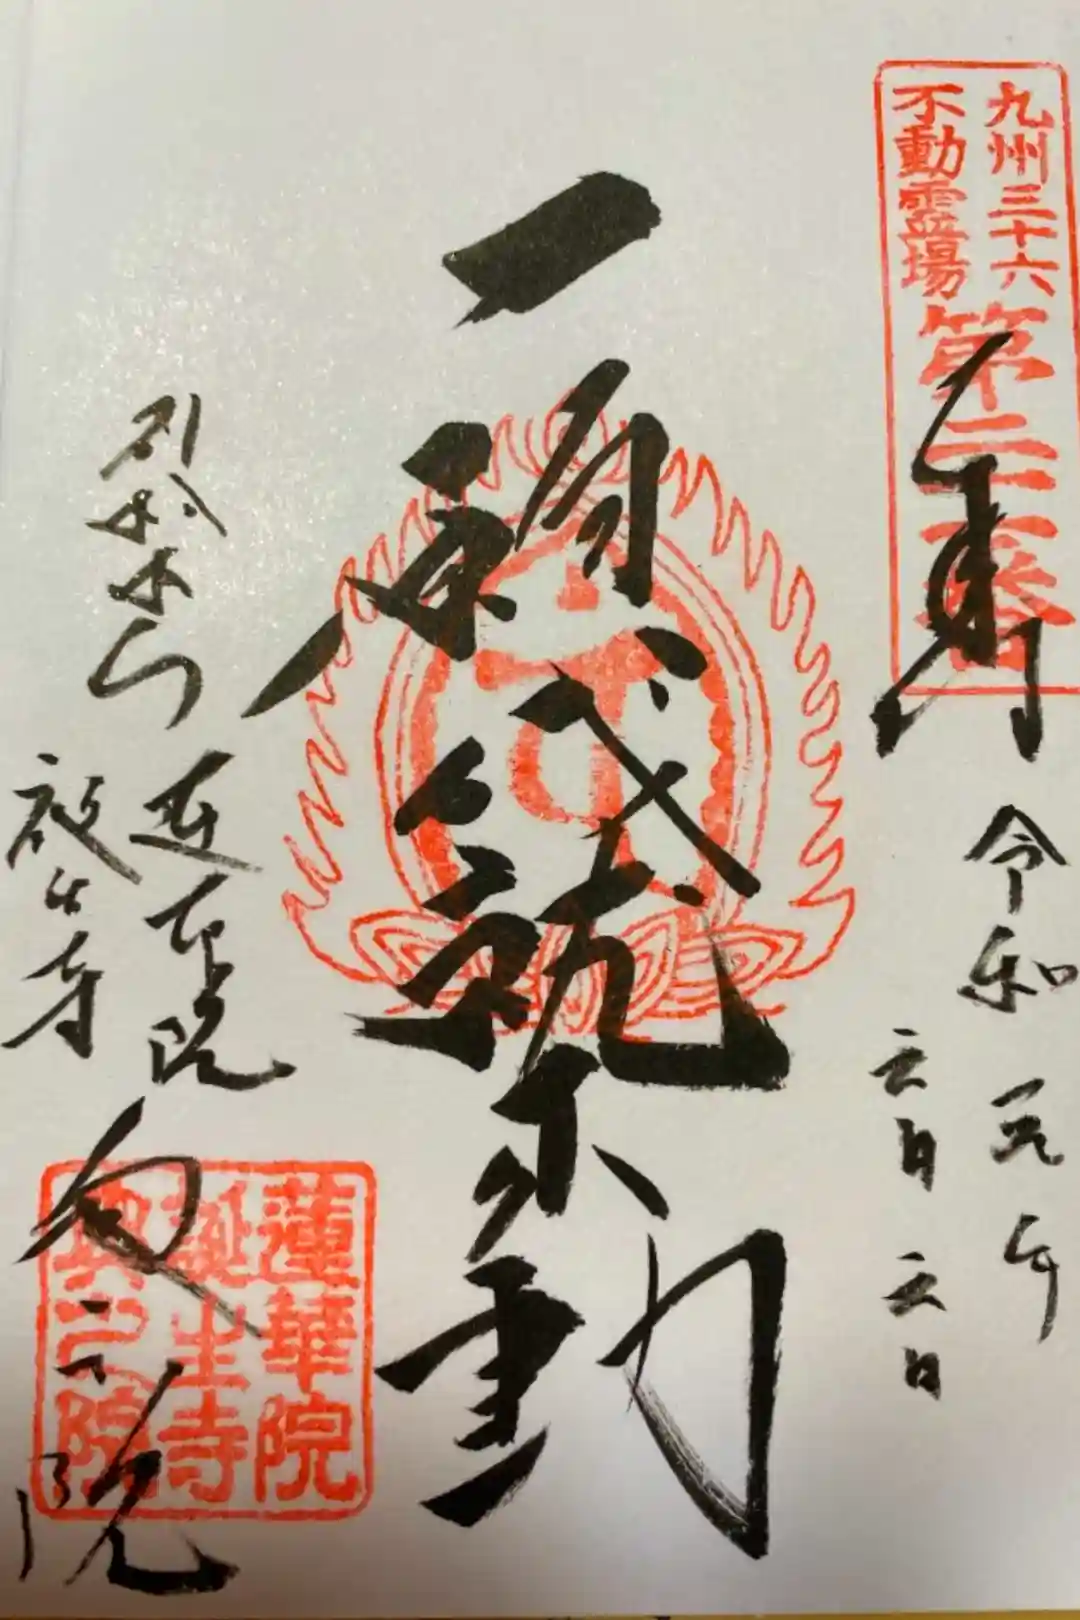 九州三十六
不動霊場
奉拝
令和元年
六月六日
一願成就不動
別格本山
蓮華院
誕生寺
奥之院
蓮華院
誕生寺
奥之院